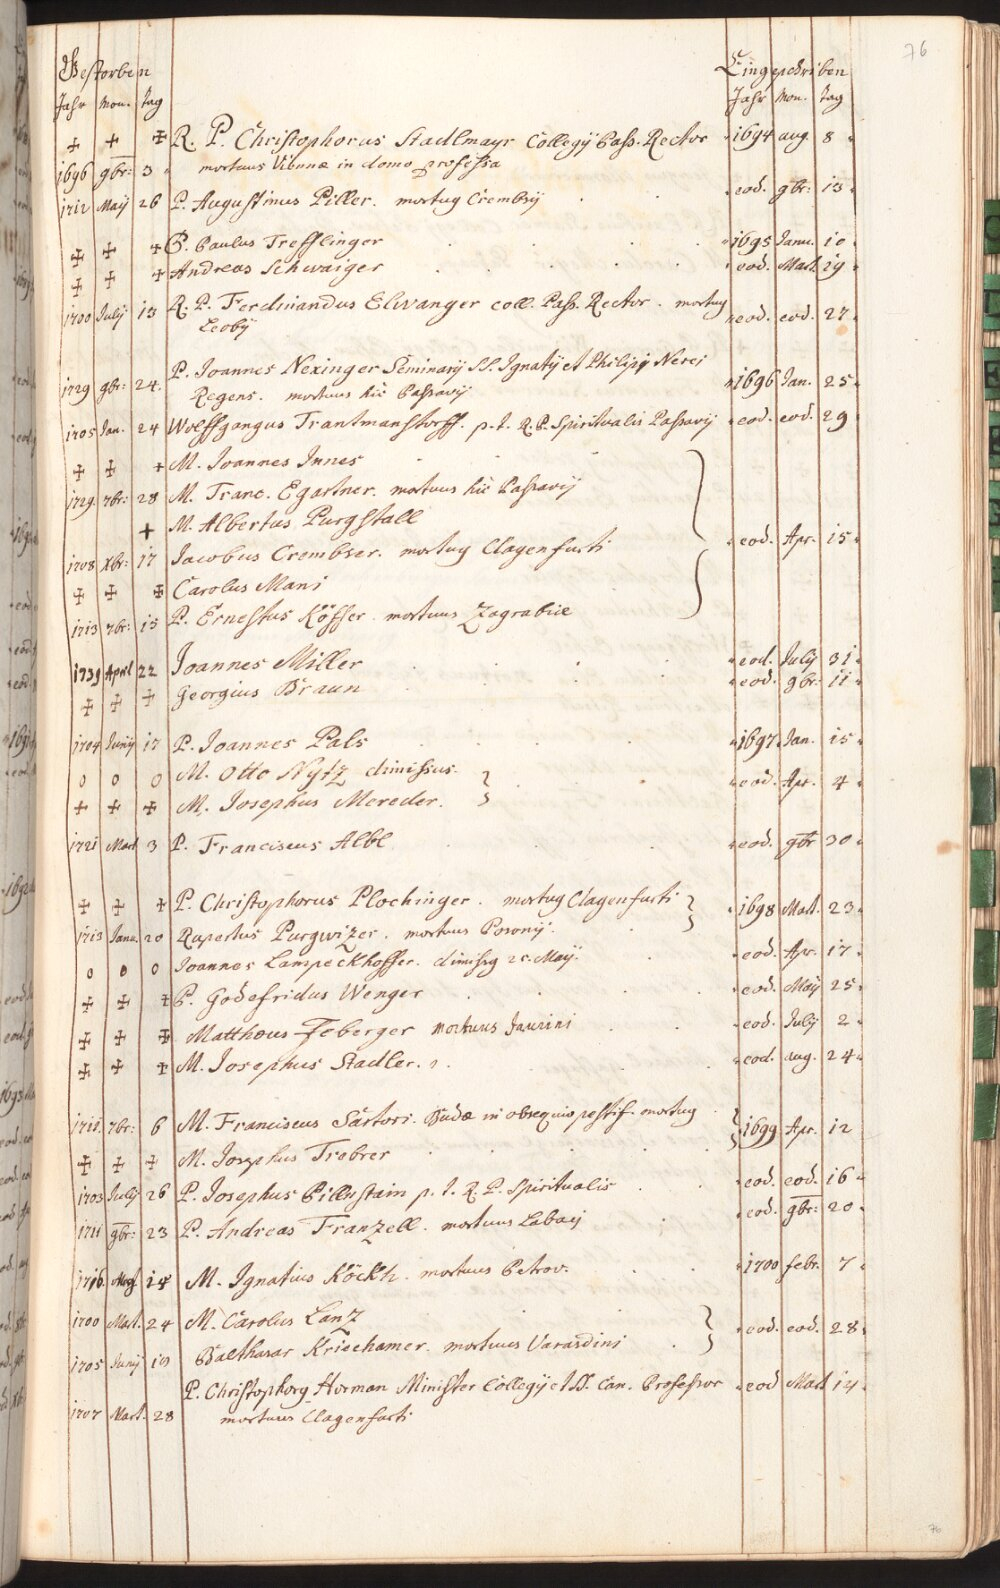 76
Gestorben Eingeschriben
Jahr Mon. Tag Jahr Mon. Tag
+ + + R. P. Christophorus Stadlmayr Collegij Pass. Rector 1694 aug. 8
1696 9br: 3 mortuus Viennæ in domo professa
1712 Maij 26 P. Augustinus Piller. mortuq Crembsij eod. 9br: 13
+ + + P. Paulus Trefflinger 1695 Janu. 10
+ + + Andreas Schwaiger eod. Mart. 19
1700 July 13 R. P. Ferdinandus Elwanger coll. Pass. Rector. mortuq eod. eod. 27
Leobij
P. Joannes Nexinger Seminarij SS. Ignatij et Philippi Nerei
1729 9br: 24. Regens. mortuus hic Passavij 1696 Jan. 25
1705 Jan. 24 Wolffgangus Trantmanstorff. p. t. R. P. Spiritualis Passavij eod. eod. 29
+ + + M. Joannes Innes
1729. 7br: 28 M. Franc. Egartner. mortuus hic Passavij
+ M. Albertus Purgstall eod. Apr. 15
1708 Xbr: 17 Jacobus Crembser. mortuq Clagenfurti
+ + + Carolus Mani
1713 7br: 15 P. Ernestus Kösser. mortuus Zagrabiæ
1739 April 22 Joannes Miller eod. July 31
+ + + Georgius Braun eod. 9br: 11
1704 Junij 17 P. Joannes Pals 1697 Jan. 15
0 0 0 M. Otto Nytz dimissus. eod. Apr. 4
+ + + M. Josephus Mereder.
1721 Mart 3 P. Franciscus Albl eod. 9br 30
+ + + P. Christophorus Plochinger. mortuq Clagenfurti 1698 Mart. 23
1713 Janu. 20 Rupertus Purgwizer. mortuus Posonij.
0 0 0 Joannes Lampeckhoffer. dimissq 25. Maij. eod. Apr. 17
+ + + P. Godefridus Wenger eod. Maij 25
+ + + Matthæus Feberger mortuus Jaurini eod. July 2
+ + + M. Josephus Stadler. eod. aug. 24
7br: 6 M. Franciscus Sartori. Budæ in obsequio pestif. mortuq 1699 Apr. 12
+ + + M. Josephus Trebrer
1703 July 26 P. Josephus Pillnstain p. t. R. P. Spiritualis eod. eod. 16
1711 9br: 23 P. Andreas Franzell. mortuus Labaci eod. 9br: 20
1716. 14 M. Ignatius Köckh. mortuus Petrov. 1700 febr. 7
1700 Mart. 24 M. Carolus Lanz eod. eod. 28
1705 Junij 19 Balthasar Kriechamer. mortuus Varasdini
P. Christophorq Horman Minister Collegij et SS. Can. Professor eod Mart 14
1707 Mart. 28 mortuus Clagenfurti
76